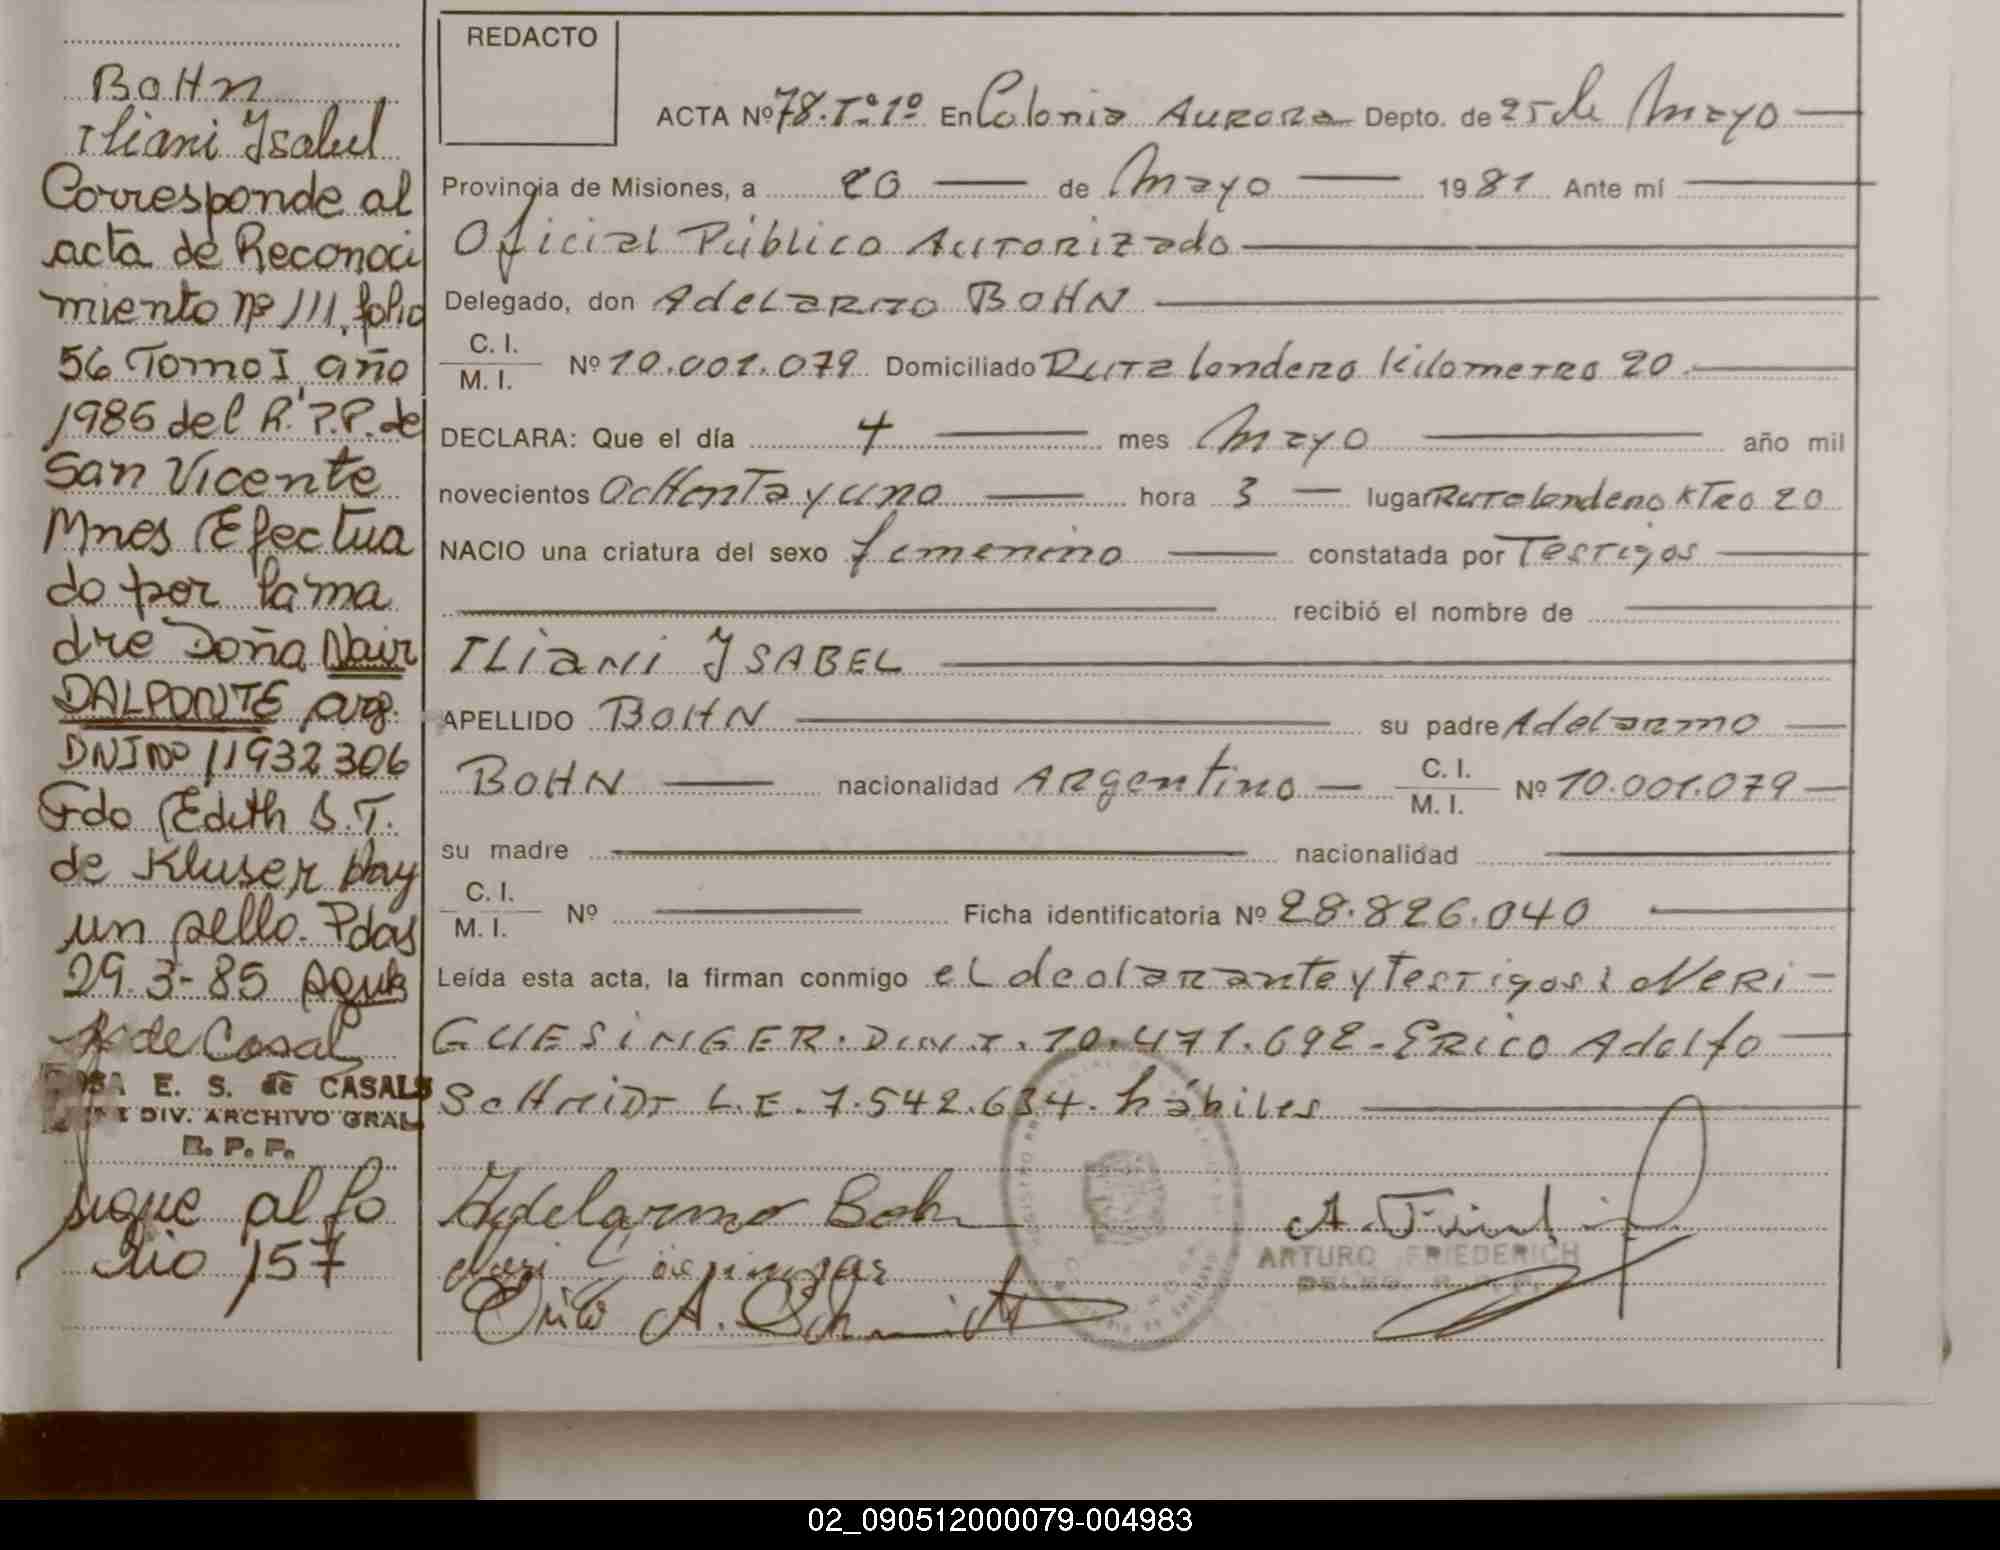 BOHN
Iliani Ysabel
Corresponde al
acta de Reconoci
miento Nº 111, folio
56 Tomo I, año
1985 del R.P.P. de
San Vicente
Mnes Efectua
do por la ma
dre Doña Nair
DALPONTE arg.
DNI Nº 11932306
Fdo Edith S.T.
de Kluser hay
un sello. Pdas
29-3-85
de Casal
E. S. de CASALS
DIV. ARCHIVO GRAL
R. P. P.
sigue al fo
lio 157
REDACTO
ACTA Nº 78. Tº. 1º En Colonia Aurora Depto. de 25 de Mayo
Provincia de Misiones, a 20 de Mayo 1981 Ante mí
Oficial Público Autorizado
Delegado, don Adelarmo BOHN
C. I.
M. I. Nº 10.001.079 Domiciliado Ruta londero Kilometro 20
DECLARA: Que el día 4 mes Mayo año mil
novecientos ocHenTa y uno hora 3 lugar Ruta londero KTro 20
NACIO una criatura del sexo femenino constatada por Testigos
recibió el nombre de
ILiani YSABEL
APELLIDO BOHN su padre Adelarmo
BOHN nacionalidad Argentino C. I.
M. I. Nº 10.001.079
su madre nacionalidad
C. I.
M. I. Nº Ficha identificatoria Nº 28.826.040
Leída esta acta, la firman conmigo el declarante y Testigos: Neri
GUESINGER. D.N.I. 10.471.692 - Erico Adolfo
ScHmiDT L.E. 7.542.634. hábiles
Adelarmo Bohn
Neri
Erico A. Schmidt
A. Friederich
ARTURO FRIEDERICH
DELEG. R. P. P.
02_090512000079-004983